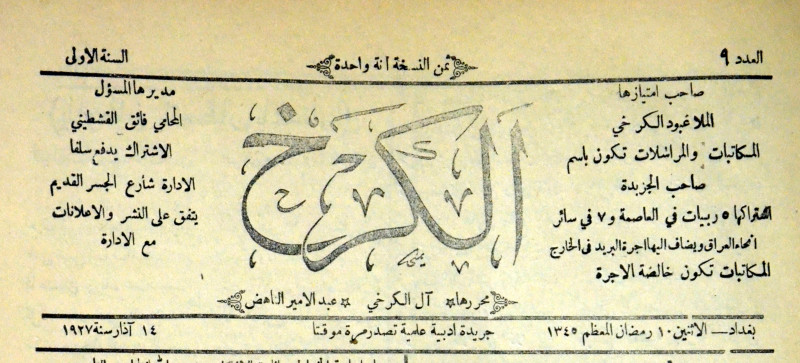 العدد ٩
ثمن النسخة آنة واحدة
السنة الاولى
صاحب امتيازها
الملا عبود الكرخي
المكاتبات والمراسلات تكون باسم
صاحب الجريدة
اشتراكها ٥ ربيات في العاصمة و ٧ في سائر
انحاء العراق ويضاف اليها اجرة البريد في الخارج
المكاتبات تكون خالصة الاجرة
الكرخ
محررها آل الكرخي ٭ عبد الامير الناهض
مديرها المسؤل
المحامي فائق القشطيني
الاشتراك يدفع سلفا
الادارة شارع الجسر القديم
يتفق على النشر والاعلانات
مع الادارة
بغداد — الاثنين ١٠ رمضان المعظم ١٣٤٥
جريدة ادبية علمية تصدر مرة موقتا
١٤ آذار سنة ١٩٢٧